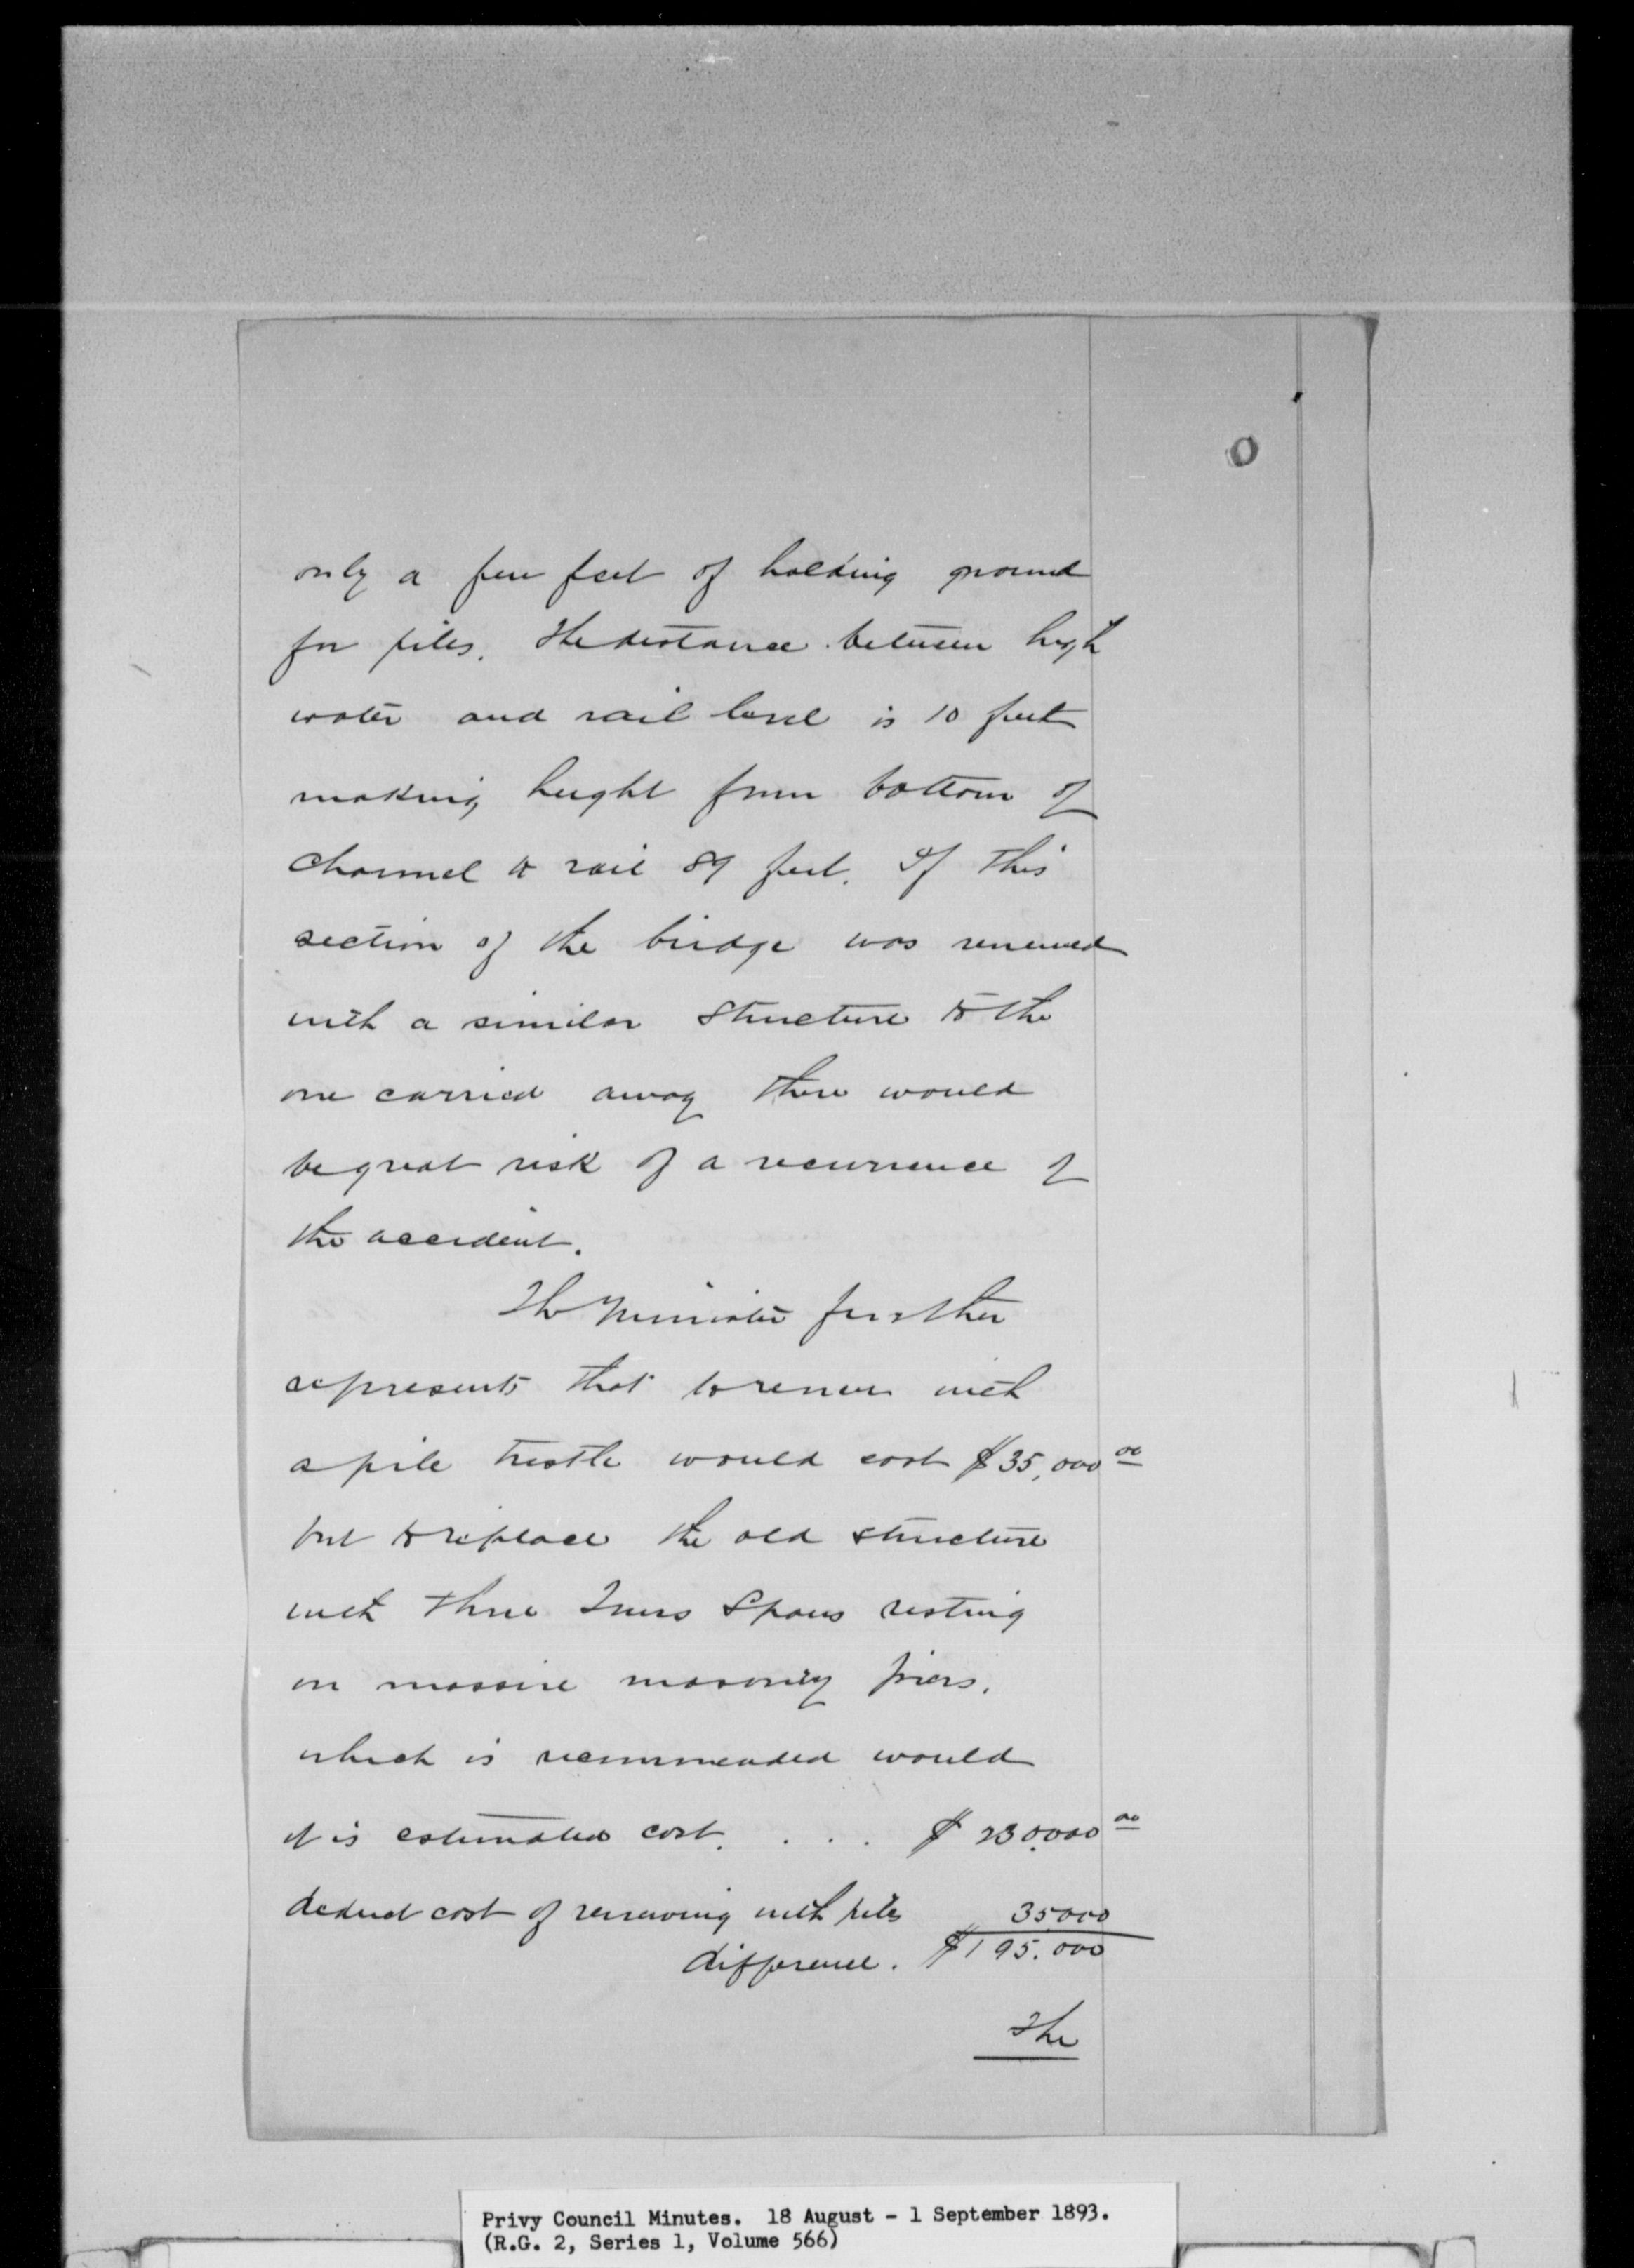 O
only a few feet of holding ground
for piles. The distance between high
water and rail level is 10 feet
making height from bottom of
channel to rail 89 feet. If this
section of the bridge was renewed
with a similar structure to the
one carried away there would
be great risk of a recurrence of
the accident.
The Minister further
represents that to renew with
a pile trestle would cost $35,000 00
but to replace the old structure
with three Truss Spans resting
on massive masonry piers,
which is recommended would
it is estimated cost. . . . $ 230,000 00
deduct cost of renewing with piles 35000
difference. $195.000
The
Privy Council Minutes. 18 August - 1 September 1893.
(R.G. 2, Series 1, Volume 566)